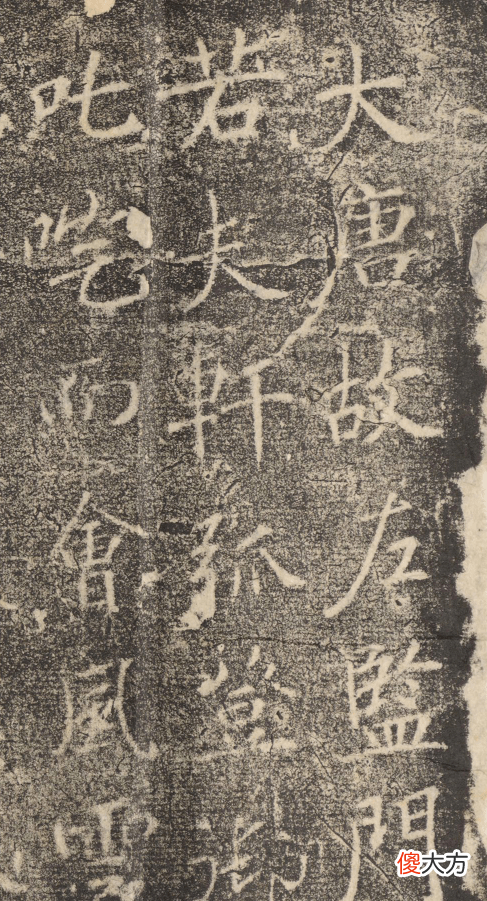 大唐故左監門
若夫軒弧
叱咤而會風雲
傻大方